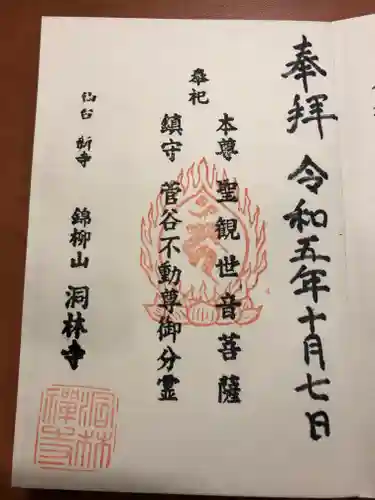 奉拝
令和五年十月七日
奉祀
本尊 聖観世音菩薩
鎮守 菅谷不動尊御分霊
仙台 新寺
錦柳山 洞林寺
洞林禅寺